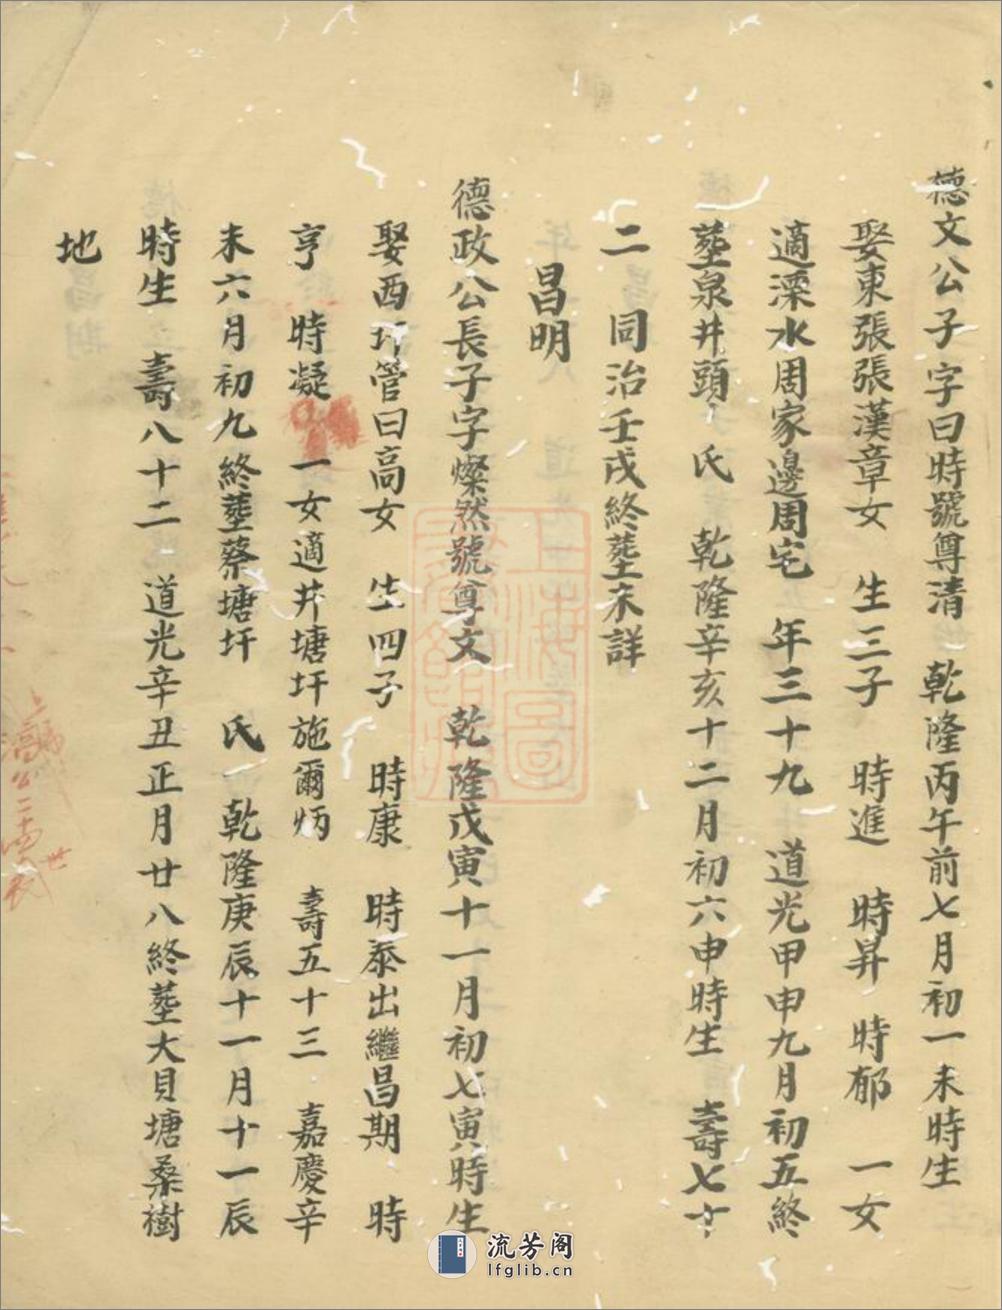 德文公子字曰時號尊清 乾隆丙午前七月初一未時生
娶東張張漢章女 生三子 時進 時昇 時郁 一女
適溧水周家邊周宅 年三十九 道光甲申九月初五終
塟泉井頭 氏 乾隆辛亥十二月初六申時生 壽七十
二 同治壬戌終塟未詳
昌明
德政公長子字燦然號尊文 乾隆戊寅十一月初七寅時生
娶西圩管曰高女 生四子 時康 時泰出繼昌期 時
亨 時凝 一女適井塘圩施爾炳 壽五十三 嘉慶辛
未六月初九終塟蔡塘圩 氏 乾隆庚辰十一月十一辰
時生 壽八十二 道光辛丑正月廿八終塟大貝塘桑樹
地
流芳阁
lfglib.cn